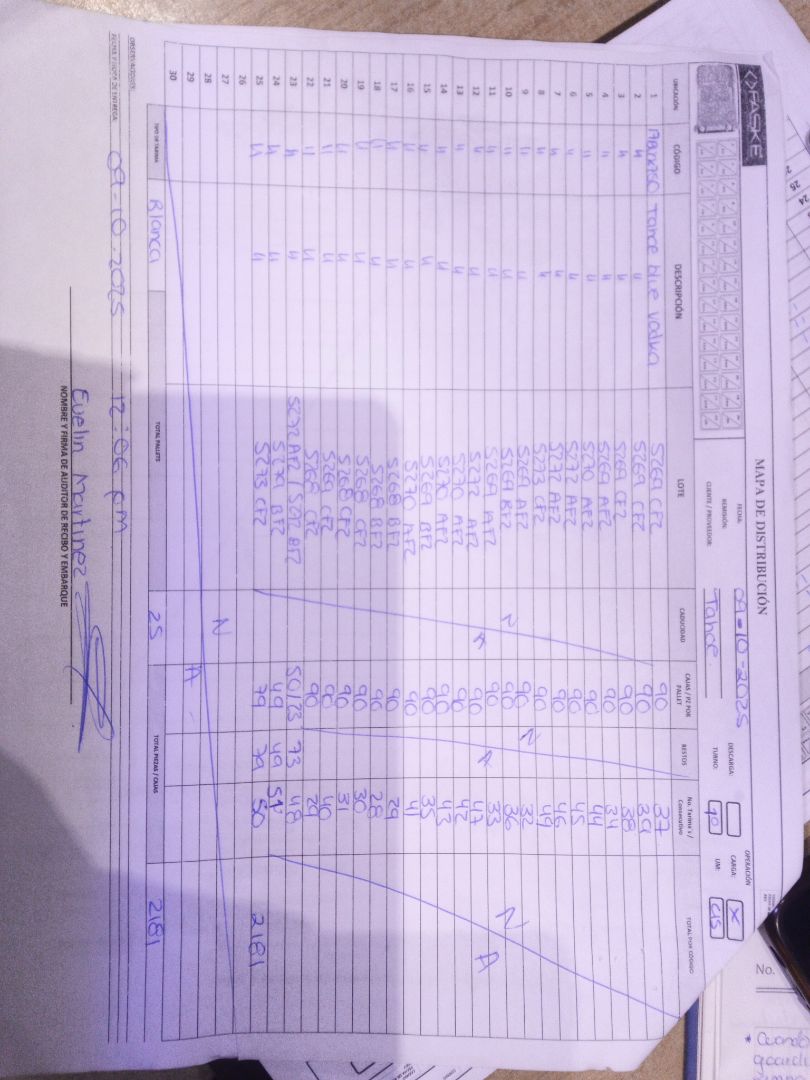 <>FASKE
MAPA DE DISTRIBUCIÓN
FECHA: 09-10-2025
REMISIÓN:
CLIENTE / PROVEEDOR: Tahoe
OPERACIÓN
DESCARGA: CARGA: X
TURNO: 1° UM: CJS
UBICACIÓN CÓDIGO DESCRIPCIÓN LOTE CADUCIDAD CAJAS / PZ POR PALLET RESTOS No. Tarima's / Consecutivo TOTAL POR CÓDIGO
1 Tahoe blue vodka S269 CFZ 90 37
2 " " S269 CFZ 90 39
3 " " S269 CFZ 90 38
4 " " S269 AFZ 90 34
5 " " S270 AFZ 90 44
6 " " S272 AFZ 90 45
7 " " S272 AFZ 90 46
8 " " S273 CFZ 90 49
9 " " S269 AFZ 90 N 32
10 " " S269 BFZ N 90 36 N
11 " " S269 AFZ 90 A 33
12 " " S272 AFZ A 90 47 A
13 " " S270 AFZ 90 42
14 " " S270 AFZ 90 43
15 " " S269 BFZ 90 35
16 " " S270 AFZ 90 41
17 " " S268 BFZ 90 29
18 " " S268 BFZ 90 28
19 " " S268 CFZ 90 30
20 " " S268 CFZ 90 31
21 " " S269 CFZ 90 40
22 " " S268 CFZ 90 29
23 " " S272 AFZ S272 BFZ 50/23 73 48
24 " " S270 BFZ 49 49 51
25 " " S273 CFZ 79 79 50 2181
26
27 N
28
29 A
30
TIPO DE TARIMA Blanca TOTAL PALLETS 25 TOTAL PIEZAS / CAJAS 2181
OBSERVACIONES:
FECHA Y HORA DE ENTREGA: 09-10-2025 12:06 pm
Evelin Martinez
NOMBRE Y FIRMA DE AUDITOR DE RECIBO Y EMBARQUE
No.
* Cuando